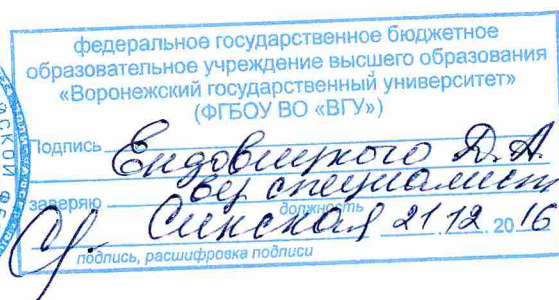 федеральное государственное бюджетное
образовательное учреждение высшего образования
«Воронежский государственный университет»
(ФГБОУ ВО «ВГУ»)
Подпись Ендовицкого Д.А.
вед специалист
заверяю
должность
Синская 21 12 2016
подпись, расшифровка подписи